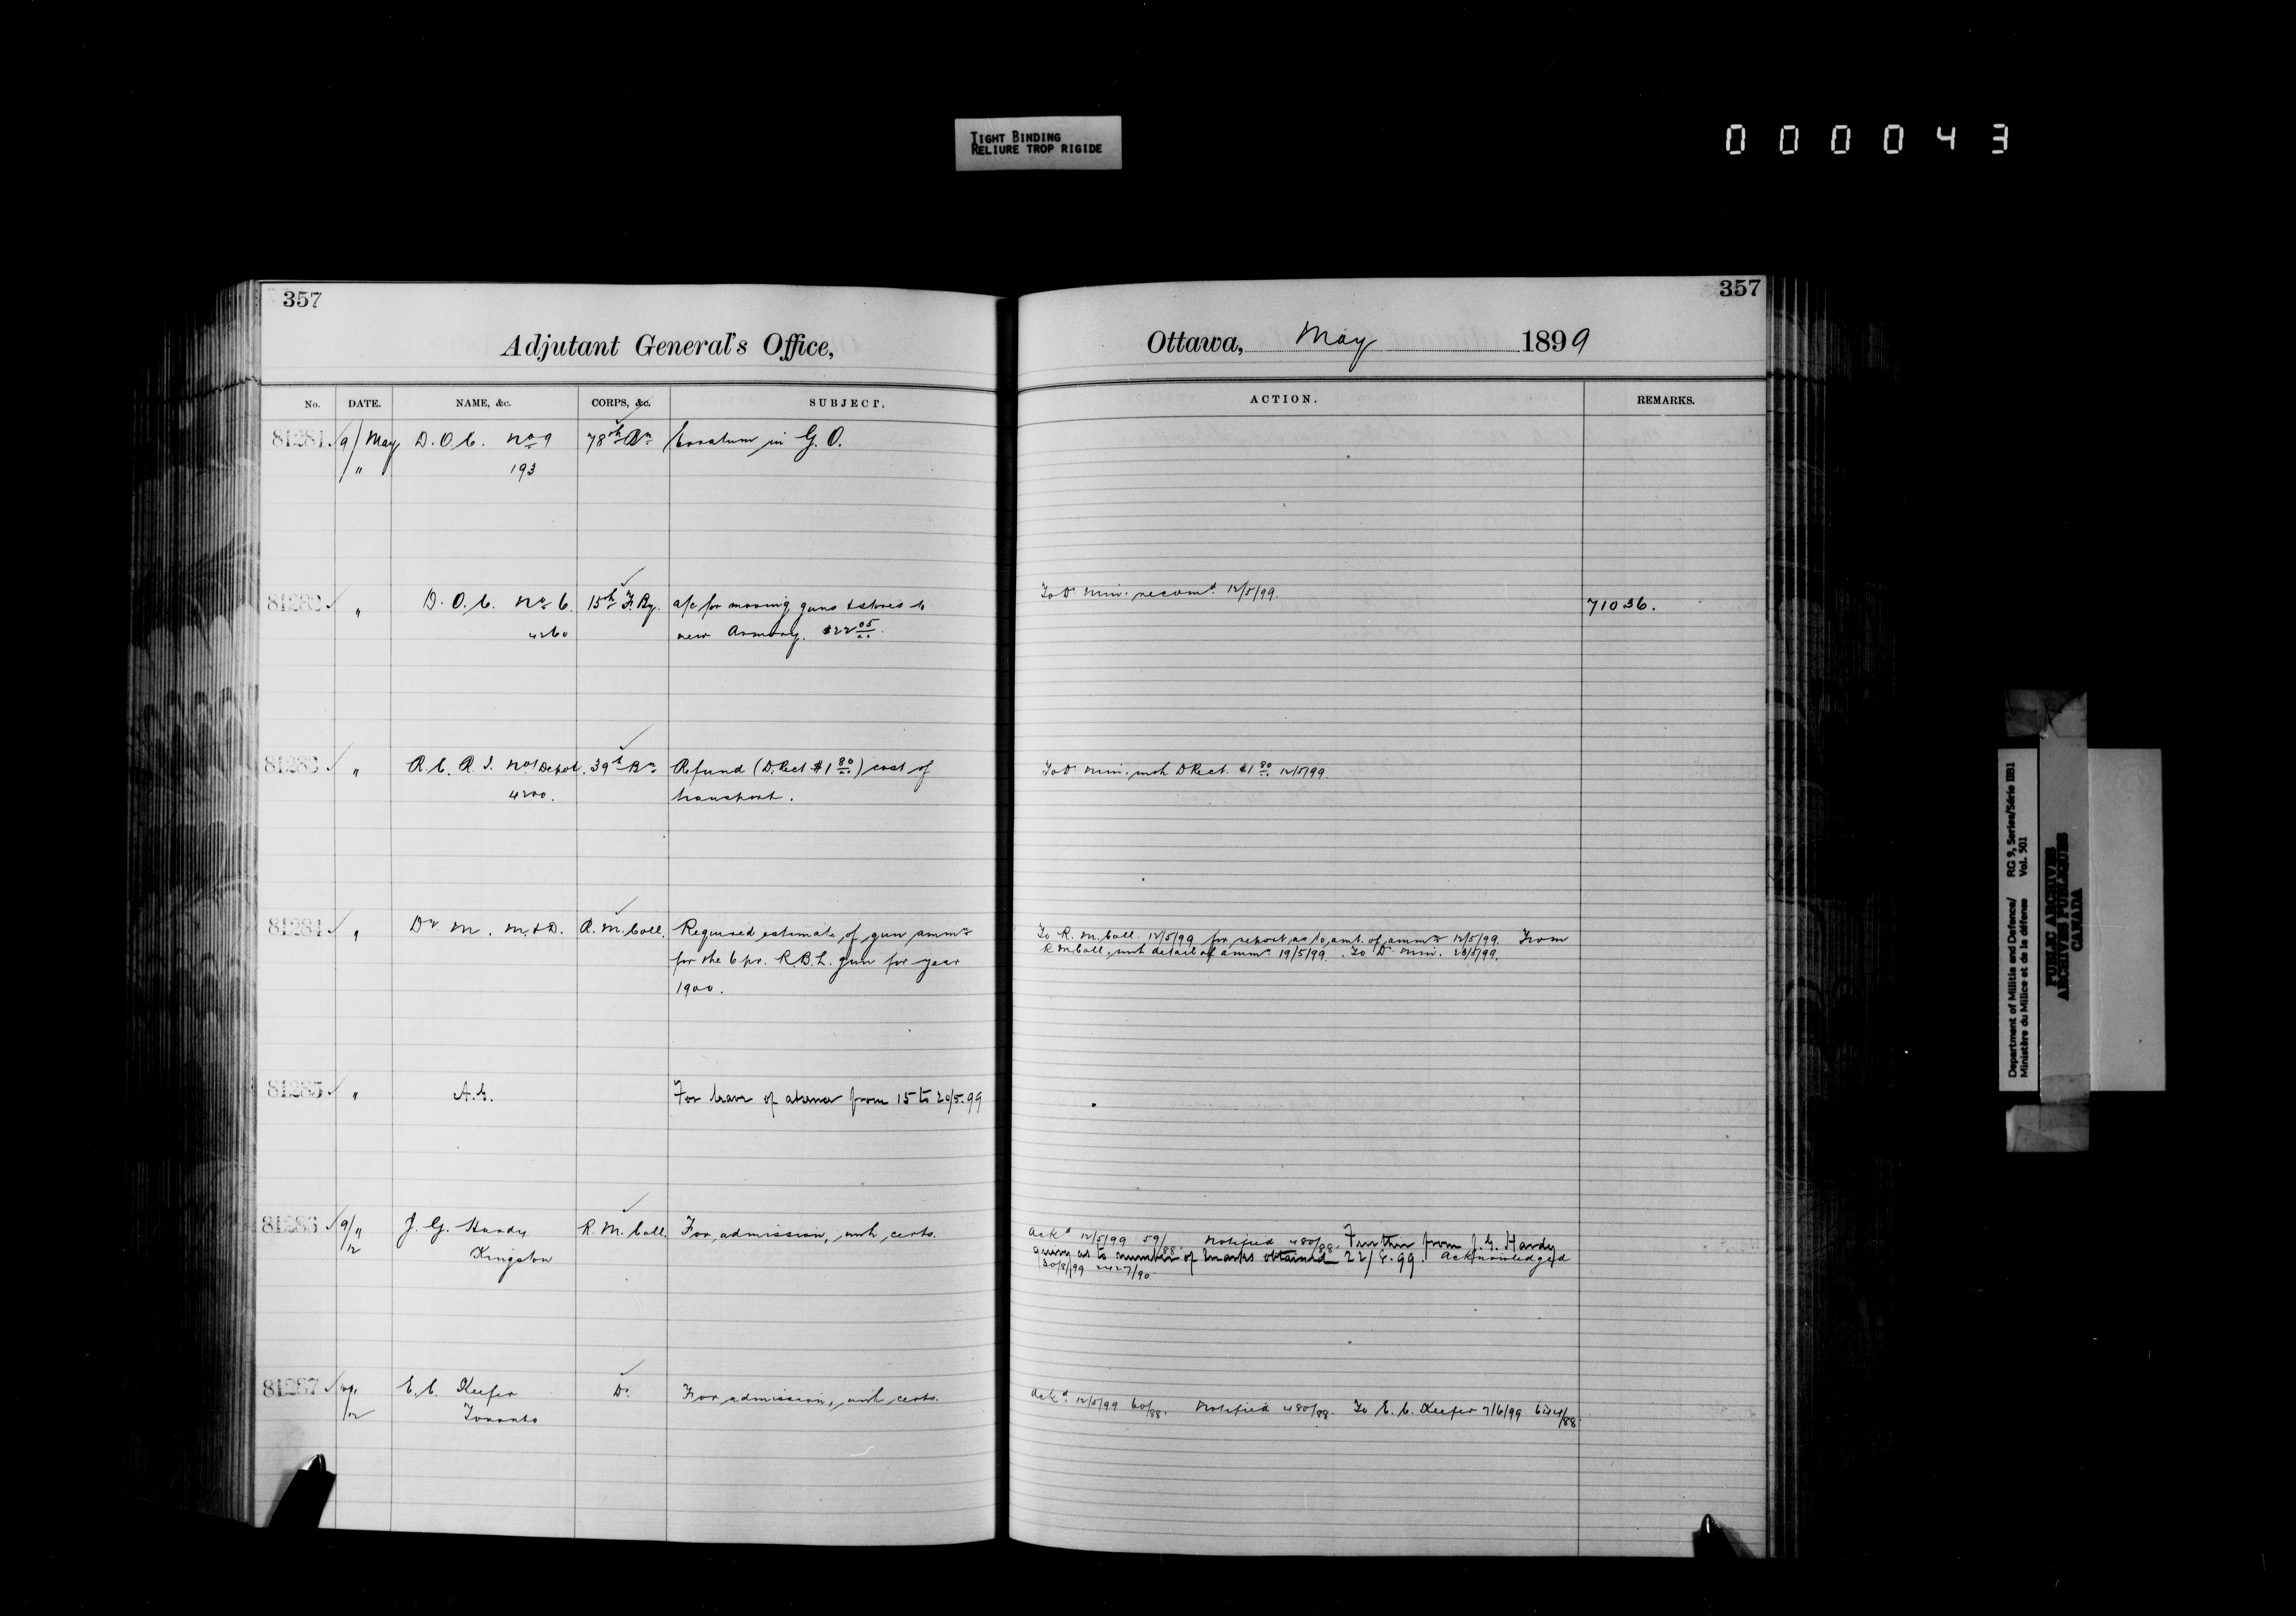 TIGHT BINDING
RELIURE TROP RIGIDE
000043
357
357
Adjutant General's Office,
Ottawa, May 1899
No. DATE. NAME, &c. CORPS, &c. SUBJECT. ACTION. REMARKS.
81281 9/May D.O.C. No 9 78th Bn Erratum in G.O.
" 193
81282 " D.O.C. No 6. 15th F. By. a/c for moving guns & stores to
4260 new Armory. $22 05
To D. Min. recomd. 12/5/99.
71036.
81283 " R.C.R.I. No 1 Depot. 39th Bn Refund (D. Rect $1 80) cost of
4200. transport.
To D. Min. with D Rect. $1 80 12/5/99.
81284 " Dr M. M. & D. R.M. Coll. Required estimate of gun ammn
for the 6 pr. R.B.L. gun for year
1900.
To R.M. Coll. 12/5/99 for report as to amt. of ammn 12/5/99. From
R M Coll, with detail of ammn 19/5/99. To D. Min. 23/5/99.
81285 " A.G. For leave of absence from 15 to 20/5.99
81286 9/" J.G. Hardy R.M. Coll. For admission, with certs.
12 Kingston
Ackd 12/5/99 59/88. Notified 480/88. Further from J.G. Hardy
query as to number of marks obtained 22/8.99. Acknowledged
30/8/99 2427/90
81287 E.C. Keefer Do. For admission, with certs.
12 Toronto
Ackd. 12/5/99 60/88. Notified 480/88. To E.C. Keefer 7/6/99
Department of Militia and Defence/ RG 9, Series/Série IIB1
Ministère du Milice et de la défense Vol. 501
PUBLIC ARCHIVES
ARCHIVES PUBLIQUES
CANADA